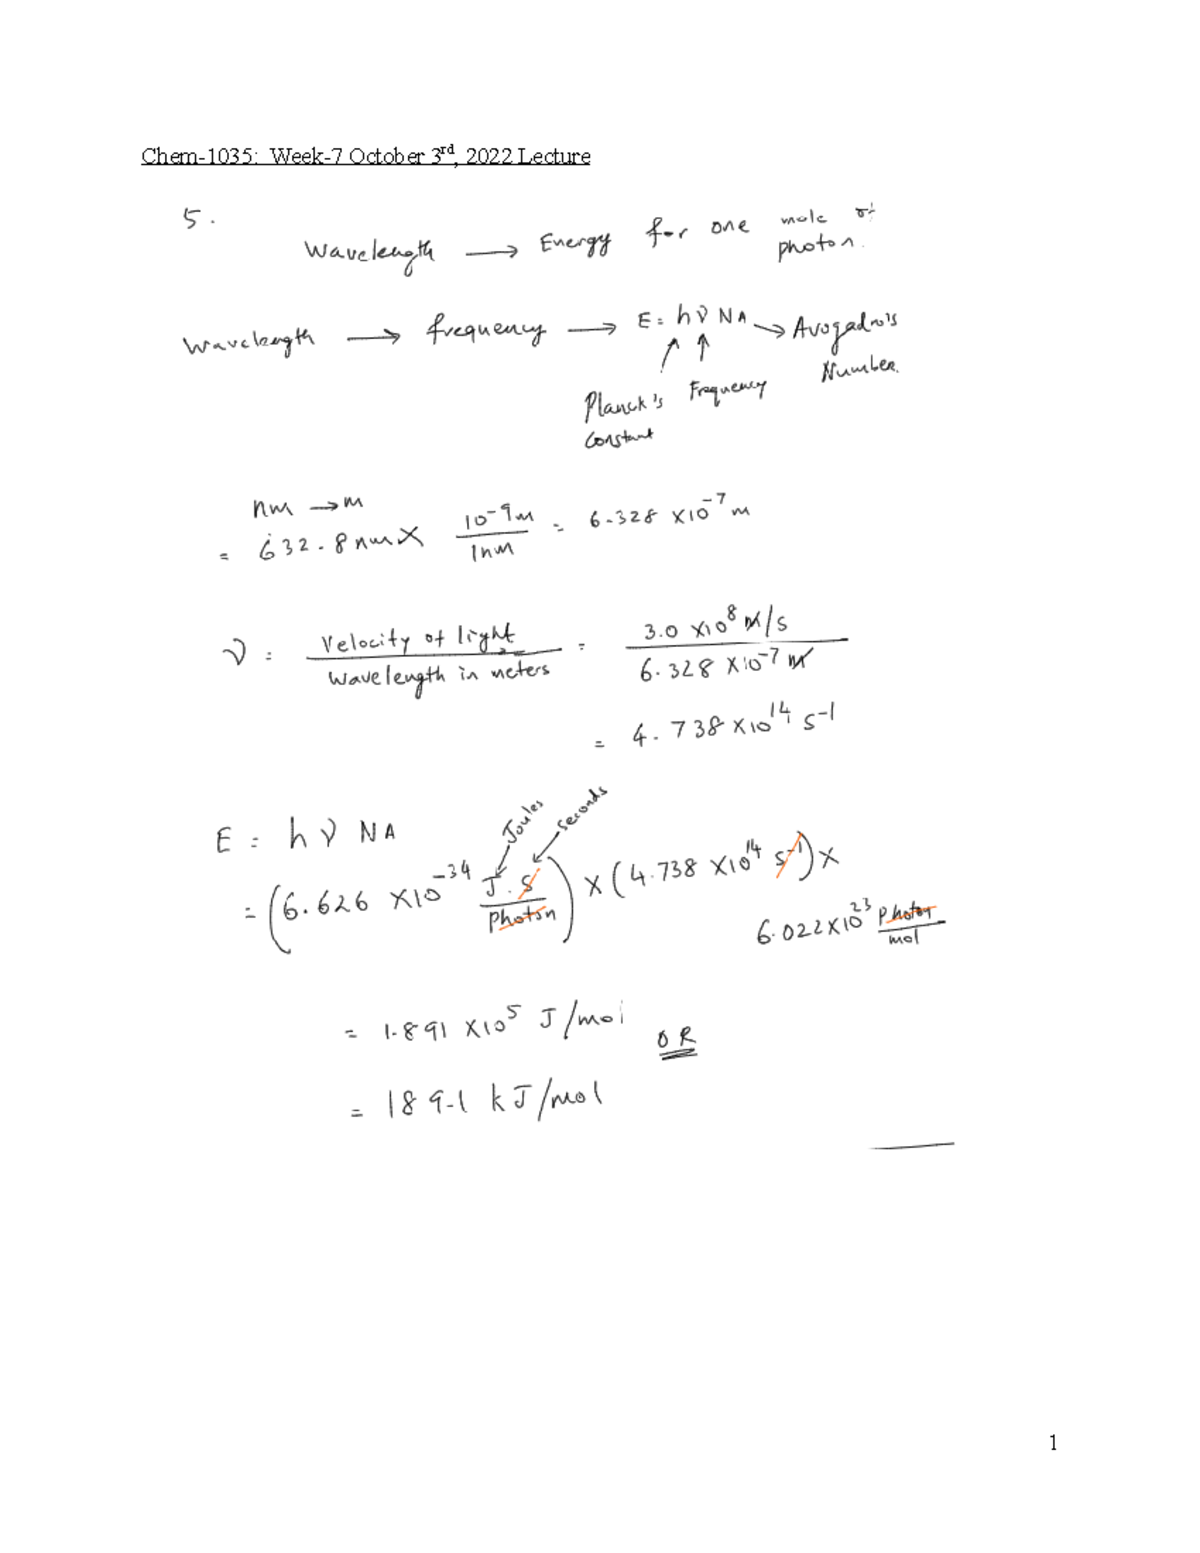 Chem-1035: Week-7 October 3rd, 2022 Lecture
5.
Wavelength → Energy for one mole of photon.
Wavelength → frequency → E = hν NA → Avogadro's Number.
Planck's Constant
Frequency
nm → m
= 632.8 nm X 10^-9 m / 1nm = 6.328 X10^-7 m
ν = Velocity of light / Wavelength in meters = 3.0 X10^8 m/s / 6.328 X10^-7 m
= 4.738 X10^14 s^-1
Joules
seconds
E = hν NA
= (6.626 X10^-34 J.S / Photon) X (4.738 X10^14 s^-1) X
6.022X10^23 Photon / mol
= 1.891 X10^5 J/mol
OR
= 189.1 kJ/mol
1